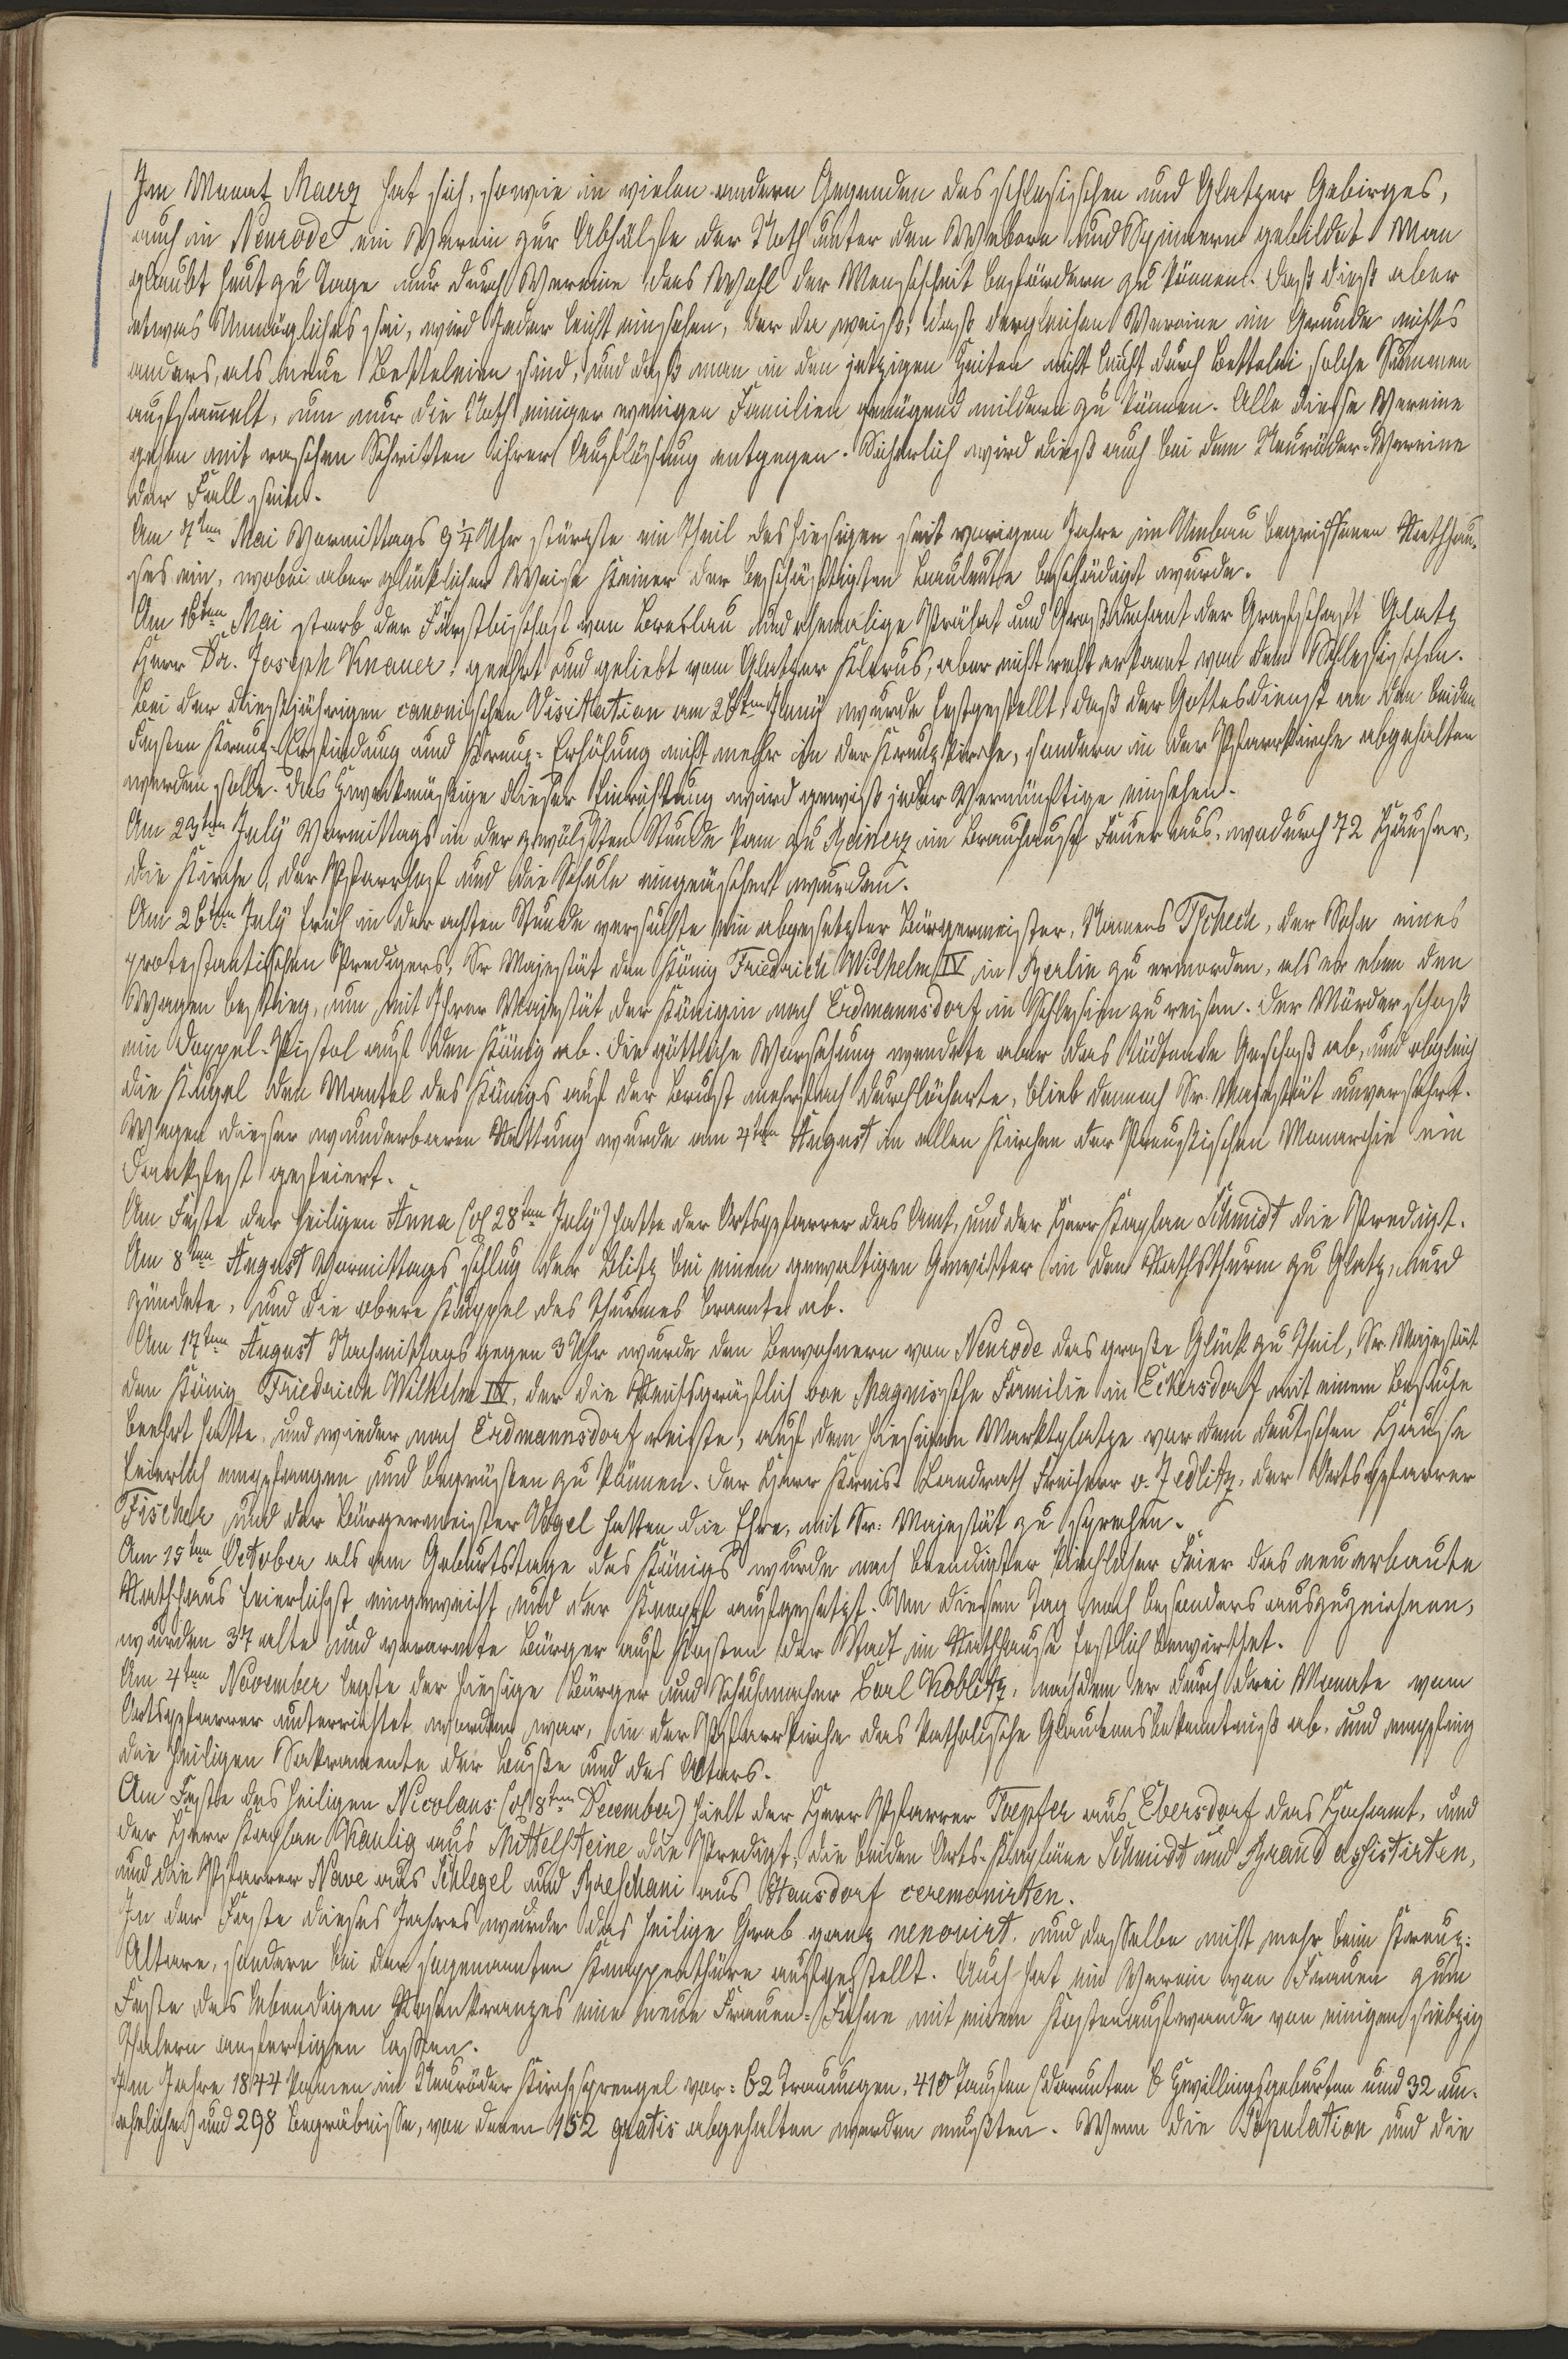 Im Monat Maerz hat sich, sowie in vielen andern Gegenden des schlesischen und Glatzer Gebirges,
auch in Neurode ein Verein zur Abhülfe der Noth unter den Webern und Spinnern gebildet. Man
glaubt heut zu Tage nur durch Vereine das Wohl der Menschheit befördern zu können. Daß dieß aber
etwas Unmögliches sei, wird Jeder leicht einsehen, der da weiß, daß dergleichen Vereine im Grunde nichts
anders, als neue Betteleien sind, und daß man in den jetzigen Zeiten nicht leicht durch Bettelei solche Summen
aufsammelt, um nur die Noth einiger wenigen Familien genügend mildern zu können. Alle diese Vereine
gehen mit raschen Schritten ihrer Auflösung entgegen. Sicherlich wird dieß auch bei dem Neuroder-Vereine
der Fall sein.
Am 7ten Mai Vormittags 9 1/4 Uhr stürzte ein Theil des hiesigen seit vorigem Jahre im Umbau begriffenen Rathhau-
ses ein, wobei aber glücklicher Weise keiner der beschäftigten Bauleute beschädigt wurde.
Am 16ten Mai starb der Fürstbischof von Breslau und ehemalige Prälat und Großdechant der Grafschaft Glatz
Herr Dr. Joseph Knauer, geehrt und geliebt vom Glatzer Klerus, aber nicht recht erkannt von dem Schlesischen.
Bei der dießjährigen canonischen Visitation am 26ten Juny wurde festgestellt, daß der Gottesdienst an den beiden
Festen Kreuz-Erfindung und Kreuz-Erhöhung nicht mehr in der Kreuzkirche, sondern in der Pfarrkirche abgehalten
werden solle. Das Zweckmäßige dieser Einrichtung wird gewiß jeder Vernünftige einsehen.
Am 23ten July Vormittags in der zwölften Stunde kam zu Reinerz im Brauhause Feuer aus, wodurch 72 Häuser,
die Kirche, der Pfarrhof und die Schule eingeäschert wurden.
Am 26ten July früh in der achten Stunde versuchte ein abgesetzter Bürgermeister, Namens Tschech, der Sohn eines
protestantischen Predigers, Sr Majestät den König Friedrich Wilhelm IV in Berlin zu ermorden, als er eben den
Wagen bestieg, um mit Ihrer Majestät der Königin nach Erdmannsdorf in Schlesien zu reisen. Der Mörder schoß
ein Doppel-Pistol auf den König ab. Die göttliche Vorsehung wendete aber das tödtende Geschoß ab, und obgleich
die Kugel den Mantel des Königs auf der Brust mehrfach durchlöcherte, blieb dennoch Sr. Majestät unversehrt.
Wegen dieser wunderbaren Rettung wurde am 4ten August in allen Kirchen der Preußischen Monarchie ein
Dankfest gefeiert.
Am Feste der heiligen Anna (d 28ten July) hatte der Ortspfarrer das Amt, und der Herr Kaplan Schmidt die Predigt.
Am 8ten August Vormittags schlug der Blitz bei einem gewaltigen Gewitter in den Rathsthurm zu Glatz, und
zündete, und die obere Kuppel des Thurmes brannte ab.
Am 17ten August Nachmittags gegen 3 Uhr wurde den Bewohnern von Neurode das große Glück zu Theil, Sr. Majestät
den König Friedrich Wilhelm IV, der die Reichsgräflich von Magnissche Familie in Eckersdorf mit einem Besuche
beehrt hatte, und wieder nach Erdmannsdorf reiste, auf dem hiesigen Marktplatze vor dem deutschen Hause
feierlich empfangen und begrüßen zu können. Der Herr Kreis- Landrath Freiherr v. Zedlitz, der Ortspfarrer
Fischer, und der Bürgermeister Vogel hatten die Ehre, mit Sr: Majestät zu sprechen.
Am 15ten October als am Geburtstage des Königs wurde nach beendigter kirchlicher Feier das neuerbaute
Rathhaus feierlichst eingeweiht, und der Knopf aufgesetzt. Um diesen Tag noch besonders auszuzeichnen,
wurden 37 alte und verarmte Bürger auf Kosten der Stadt im Rathhause festlich bewirthet.
Am 4ten November legte der hiesige Bürger und Schuhmacher Carl Koblitz, nachdem er durch drei Monate vom
Ortspfarrer unterrichtet worden war, in der Pfarrkirche das katholische Glaubensbekenntniß ab, und empfing
die heiligen Sakramente der Buße und des Altars.
Am Feste des heiligen Nicolaus (d 8ten December) hielt der Herr Pfarrer Toepfer aus Ebersdorf das Hochamt, und
der Herr Kaplan Kaulig aus Mittelsteine die Predigt; die beiden Orts-Kapläne Schmidt und Brand assistirten,
und die Pfarrer Nave aus Schlegel und aus Hausdorf ceremonirten.
In der Faste dieses Jahres wurde das heilige Grab ganz renovirt, und dasselbe nicht mehr beim Kreuz-
Altare, sondern bei der sogenannten Knappenthüre aufgestellt. Auch hat ein Verein von Frauen zum
Feste des lebendigen Rosenkranzes eine neue Frauen-Fahne mit einem Kostenaufwande von einigen siebzig
Thalern anfertigen lassen.
Im Jahre 1844 kamen im Neuroder Kirchsprengel vor: 62 Trauungen, 410 Taufen (darunter 6 Zwillingsgeburten und 32 un-
eheliche) und 298 Begräbnisse, von denen 152 gratis abgehalten werden mußten. Wenn die Population und die